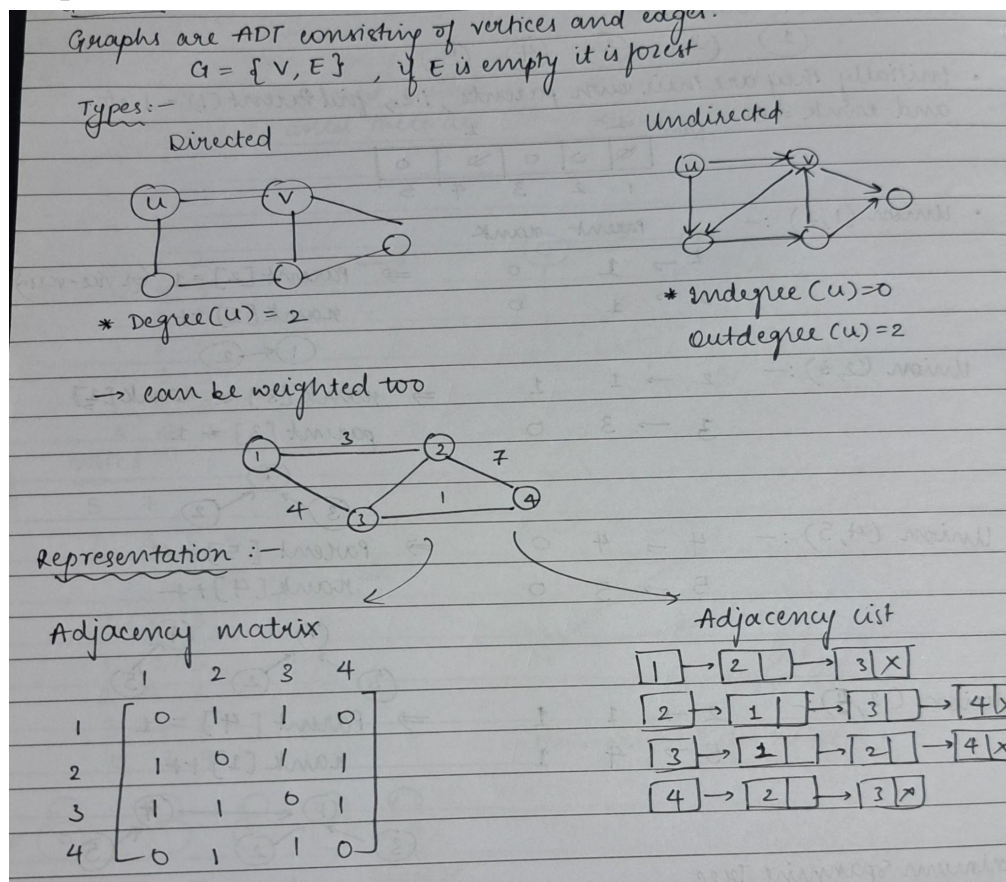 Graphs are ADT consisting of vertices and edges.
G = { V, E } , if E is empty it is forest
Types:-
Directed
Undirected
u v
u v
* Degree(u) = 2
* Indegree (u)=0
Outdegree (u)=2
→ can be weighted too
1 3 2 7
4 3 1 4
Representation :-
Adjacency matrix
Adjacency List
1 2 3 4
1 0 1 1 0
2 1 0 1 1
3 1 1 0 1
4 0 1 1 0
1 → 2 → 3 x
2 → 1 → 3 → 4 x
3 → 1 → 2 → 4 x
4 → 2 → 3 x